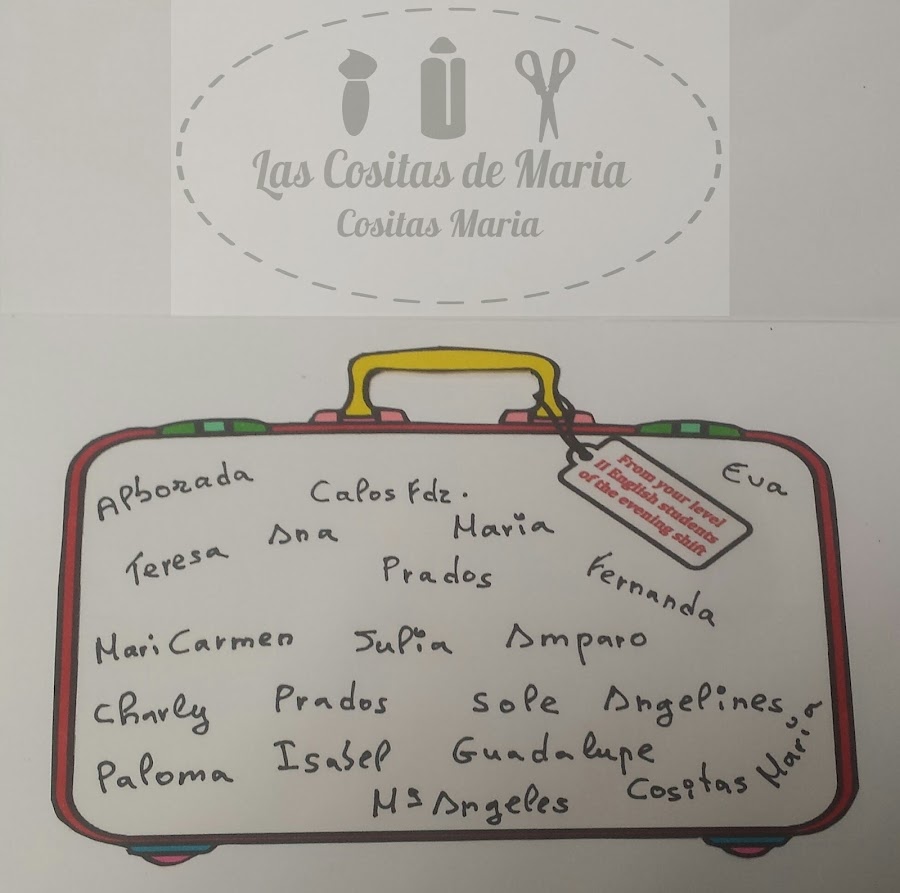 Las Cositas de Maria
Cositas Maria
From your level
II English students
of the evening shift
Alborada
Calos Fdz.
Eva
Teresa
Ana
Maria
Prados
Fernanda
Mari Carmen
Julia
Amparo
Charly
Prados
Sole
Angelines
Paloma
Isabel
Guadalupe
Mª Angeles
Cositas Maria